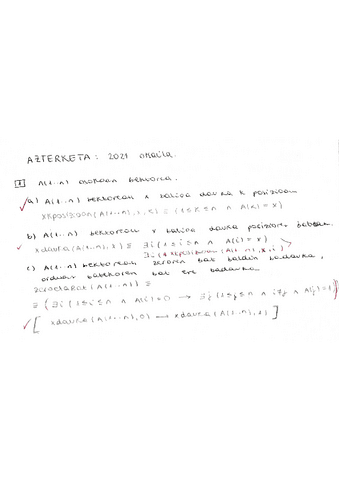 AZTERKETA: 2021 OHAIZA.
1 A(1..n) osokoen bektorea.
a) A(1..n) bektorean x balioa dauka k posizioan
xkposizioan(A(1..n), x, k) ≡ (1≤k≤n ∧ A(k) = x)
b) A(1..n) bektorean x balioa dauka posizioren batean.
xdauka(A(1..n), x) ≡ ∃i (1≤i≤n ∧ A(i) = x)
∃i (xkposizioan(A(1..n), x, i)
c) A(1..n) bektorean zeroren bat baldin badauka,
orduan batekoren bat ere badauka.
≡ (∃i (1≤i≤n ∧ A(i)=0 → ∃j (1≤j≤n ∧ i≠j ∧ A(j)=1)
[ xdauka(A(1..n), 0) → xdauka(A(1..n), 1) ]